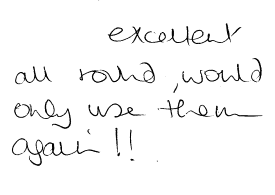 excellent
all round, would
only use them
again!!